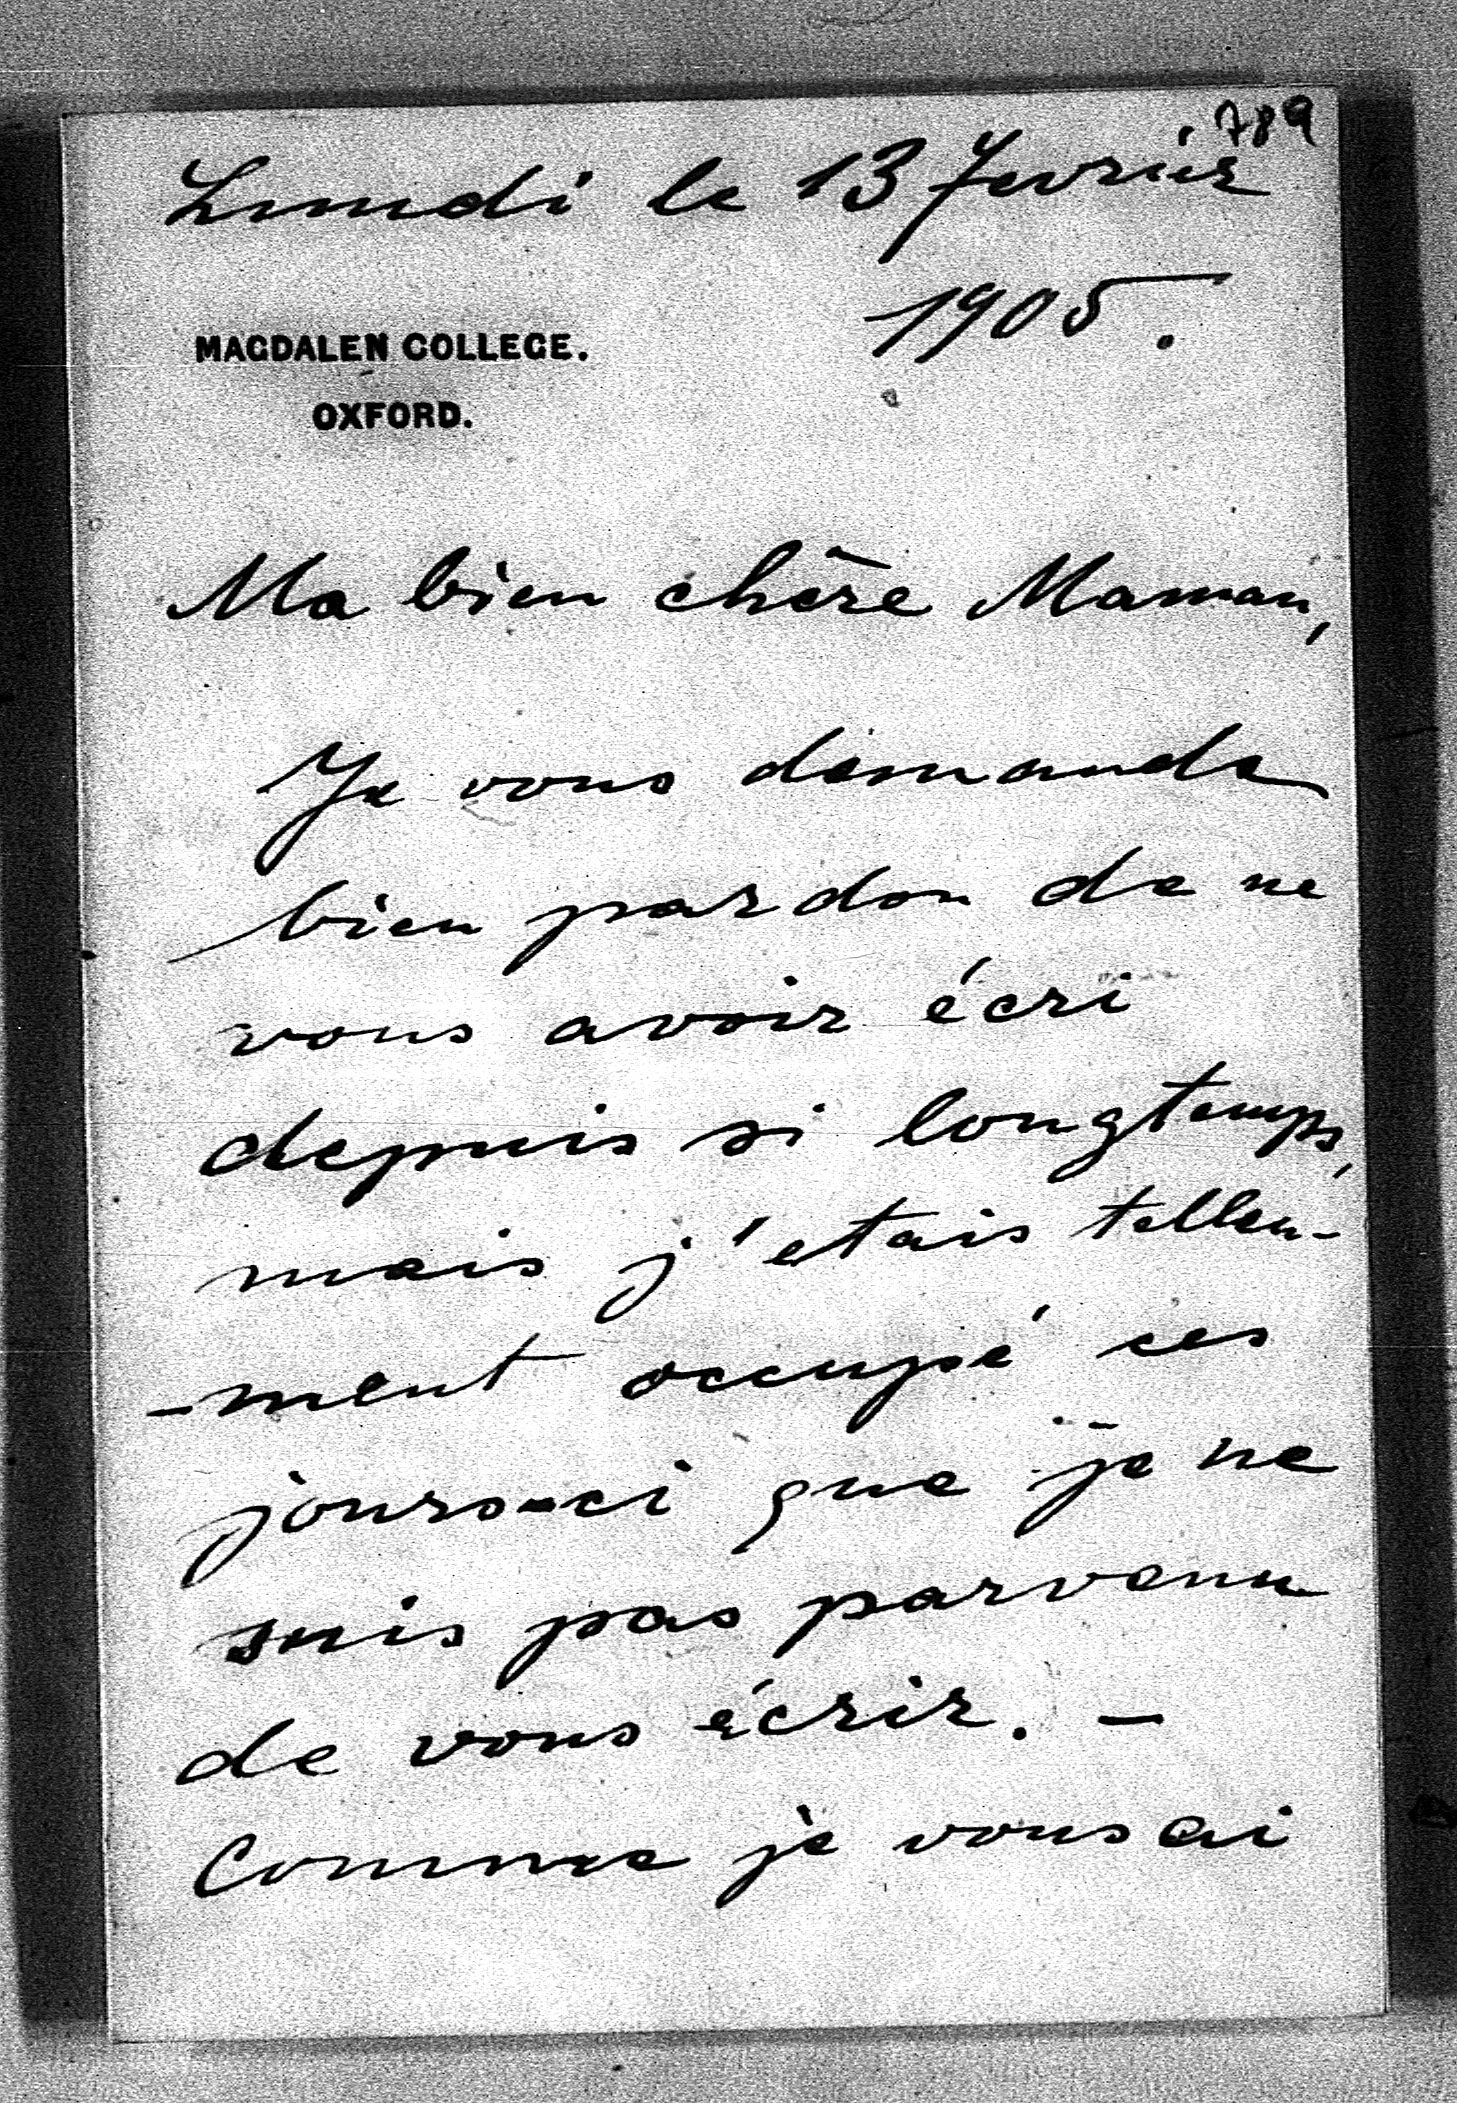 789
Lundi le 13 Fevrier
1905.
MAGDALEN COLLEGE.
OXFORD.
Ma bien chère Maman,
Je vous demande
bien pardon de ne
vous avoir écri
depuis si longtemps,
mais j'etais tellem-
-ment occupé ces
jours-ci que je ne
suis pas parvenu
de vous écrir. —
Comme je vous ai